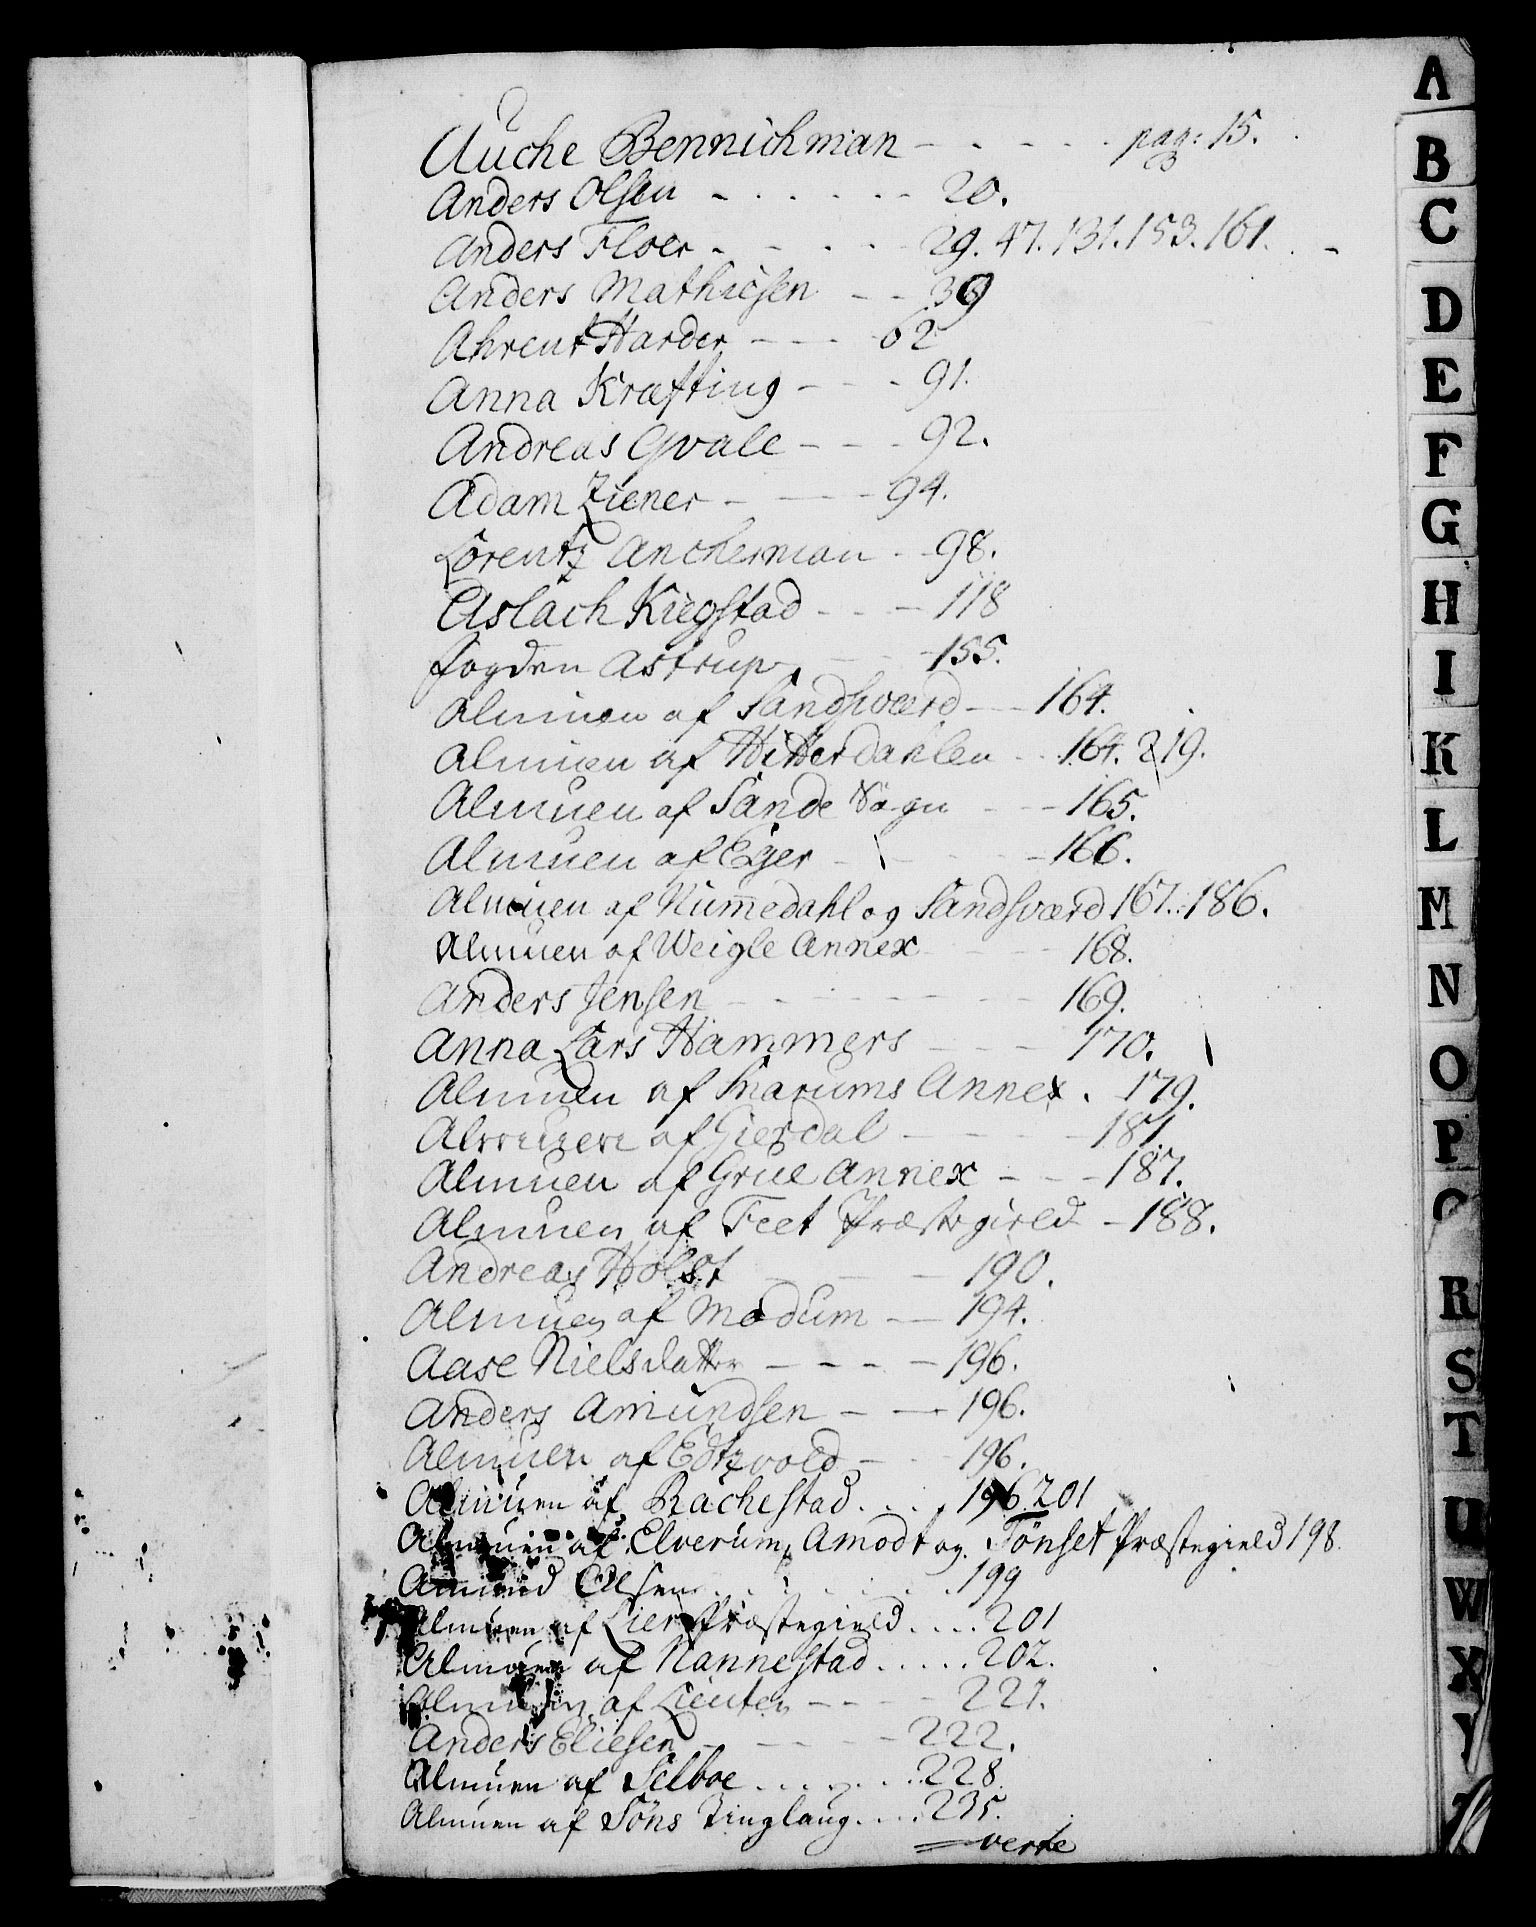 Auche Bennichman - - - - - pag: 15.
Anders Olsen - - - - - - 20.
Anders Floer - - - - - 29. 47. 131. 153. 161.
Anders Mathiesen - - 39
Ahrent Harder - - - 62
Anna Kræfting - - - 91.
Andreas Qvale - - - 92.
Adam Ziener - - - - 94.
Lorentz Ancherman - - 98.
Aslach Kiegstad - - - 118
fogden Astrup, - - - 155.
Almuen af Sandsværd - - 164.
Almuen af Hitterdahlen - - 164. 219.
Almuen af Sande Sogn - - - 165.
Almuen af Eger - - - - - 166.
Almuen af Num̄edahl og Sandsværd 167. 186.
Almuen af Weigle Annex - - - 168.
Anders Jensen - - - - - - - 169.
Anna Lars Hammers - - - 170.
Almuen af Snarums Annex. 179.
Almuen af Gierdal - - - - 181.
Almuen af Grue Annex - - - 187.
Almuen af Feet Præstegield - 188.
Andreas Holst - - - 190.
Almuen af Modum - - 194.
Aase Nielsdatter - - - - - 196.
Anders Amundsen - - - 196.
Almuen af Edtzvold - - - 196.
Almuen af Rachestad . . . . 196. 201
Almuen af Elverum, Amodt og Tönset Præstegield 198.
Amund Olsen . . . . . . . . 199
Almuen af Lier Præstegield . . . . 201
Almuen af Nannestad . . . . . 202.
Almuen af - - - - 221.
Anders Eliesen - - - - - 222.
Almuen af Selboe . . . . . . . 228.
Almuen af Söns Tinglaug . . . . 235.
verte
A
B
C
D
E
F
G
H
I
K
L
M
N
O
P
R
S
T
U
W
X
Y